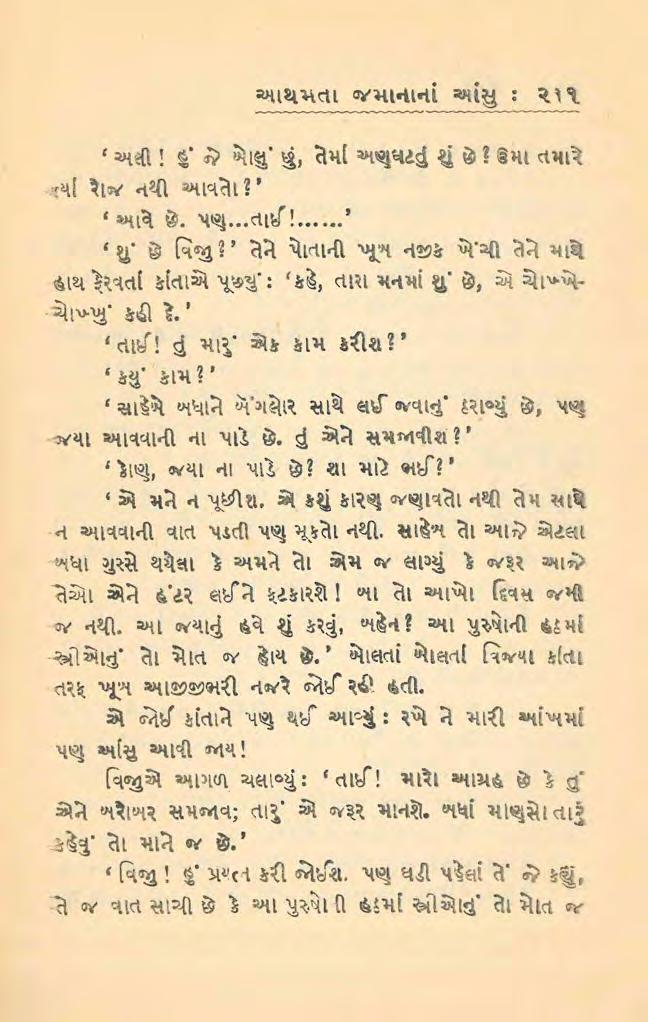 આથમતા જમાનાનાં આંસુ : ૨૧૧
‘અલી ! હું જે બોલું છું, તેમાં અણઘટતું શું છે? ઉમા તમારે
ત્યાં રોજ નથી આવતો?’
‘આવે છે. પણ...તાઈ!......’
‘શું છે વિજુ?’ તેને પોતાની ખૂબ નજીક ખેંચી તેને માથે
હાથ ફેરવતાં કાંતાએ પૂછયું: ‘કહે, તારા મનમાં શું છે, એ ચોખ્ખે-
ચોખ્ખું કહી દે.’
‘તાઈ! તું મારું એક કામ કરીશ?’
‘કયું કામ?’
‘સાહેબે બધાને બેંગલોર સાથે લઈ જવાનું ઠરાવ્યું છે, પણ
જયા આવવાની ના પાડે છે. તું એને સમજાવીશ?’
‘કોણ, જયા ના પાડે છે? શા માટે ભઈ?’
‘એ મને ન પૂછીશ. એ કશું કારણ જણાવતો નથી તેમ સાથે
ન આવવાની વાત પડતી પણ મૂકતો નથી. સાહેબ તો આજે એટલા
બધા ગુસ્સે થયેલા કે અમને તો એમ જ લાગ્યું કે જરૂર આજે
તેઓ એને હંટર લઈને ફટકારશે! બા તો આખો દિવસ જમી
જ નથી. આ જયાનું હવે શું કરવું, બહેન? આ પુરુષોની હઠમાં
સ્ત્રીઓનું તો મોત જ હોય છે.’ બોલતાં બોલતાં વિજયા કાંતા
તરફ ખૂબ આજીજીભરી નજરે જોઈ રહી હતી.
એ જોઈ કાંતાને પણ થઈ આવ્યું: રખે ને મારી આંખમાં
પણ આંસુ આવી જાય!
વિજુએ આગળ ચલાવ્યું: ‘તાઈ! મારો આગ્રહ છે કે તું
એને બરોબર સમજાવ; તારું એ જરૂર માનશે. બધાં માણસો તારું
કહેવું તો માને જ છે.’
‘વિજુ! હું પ્રયત્ન કરી જોઈશ. પણ ઘડી પહેલાં તેં જે કહ્યું,
તે જ વાત સાચી છે કે આ પુરુષોની હઠમાં સ્ત્રીઓનું તો મોત જ